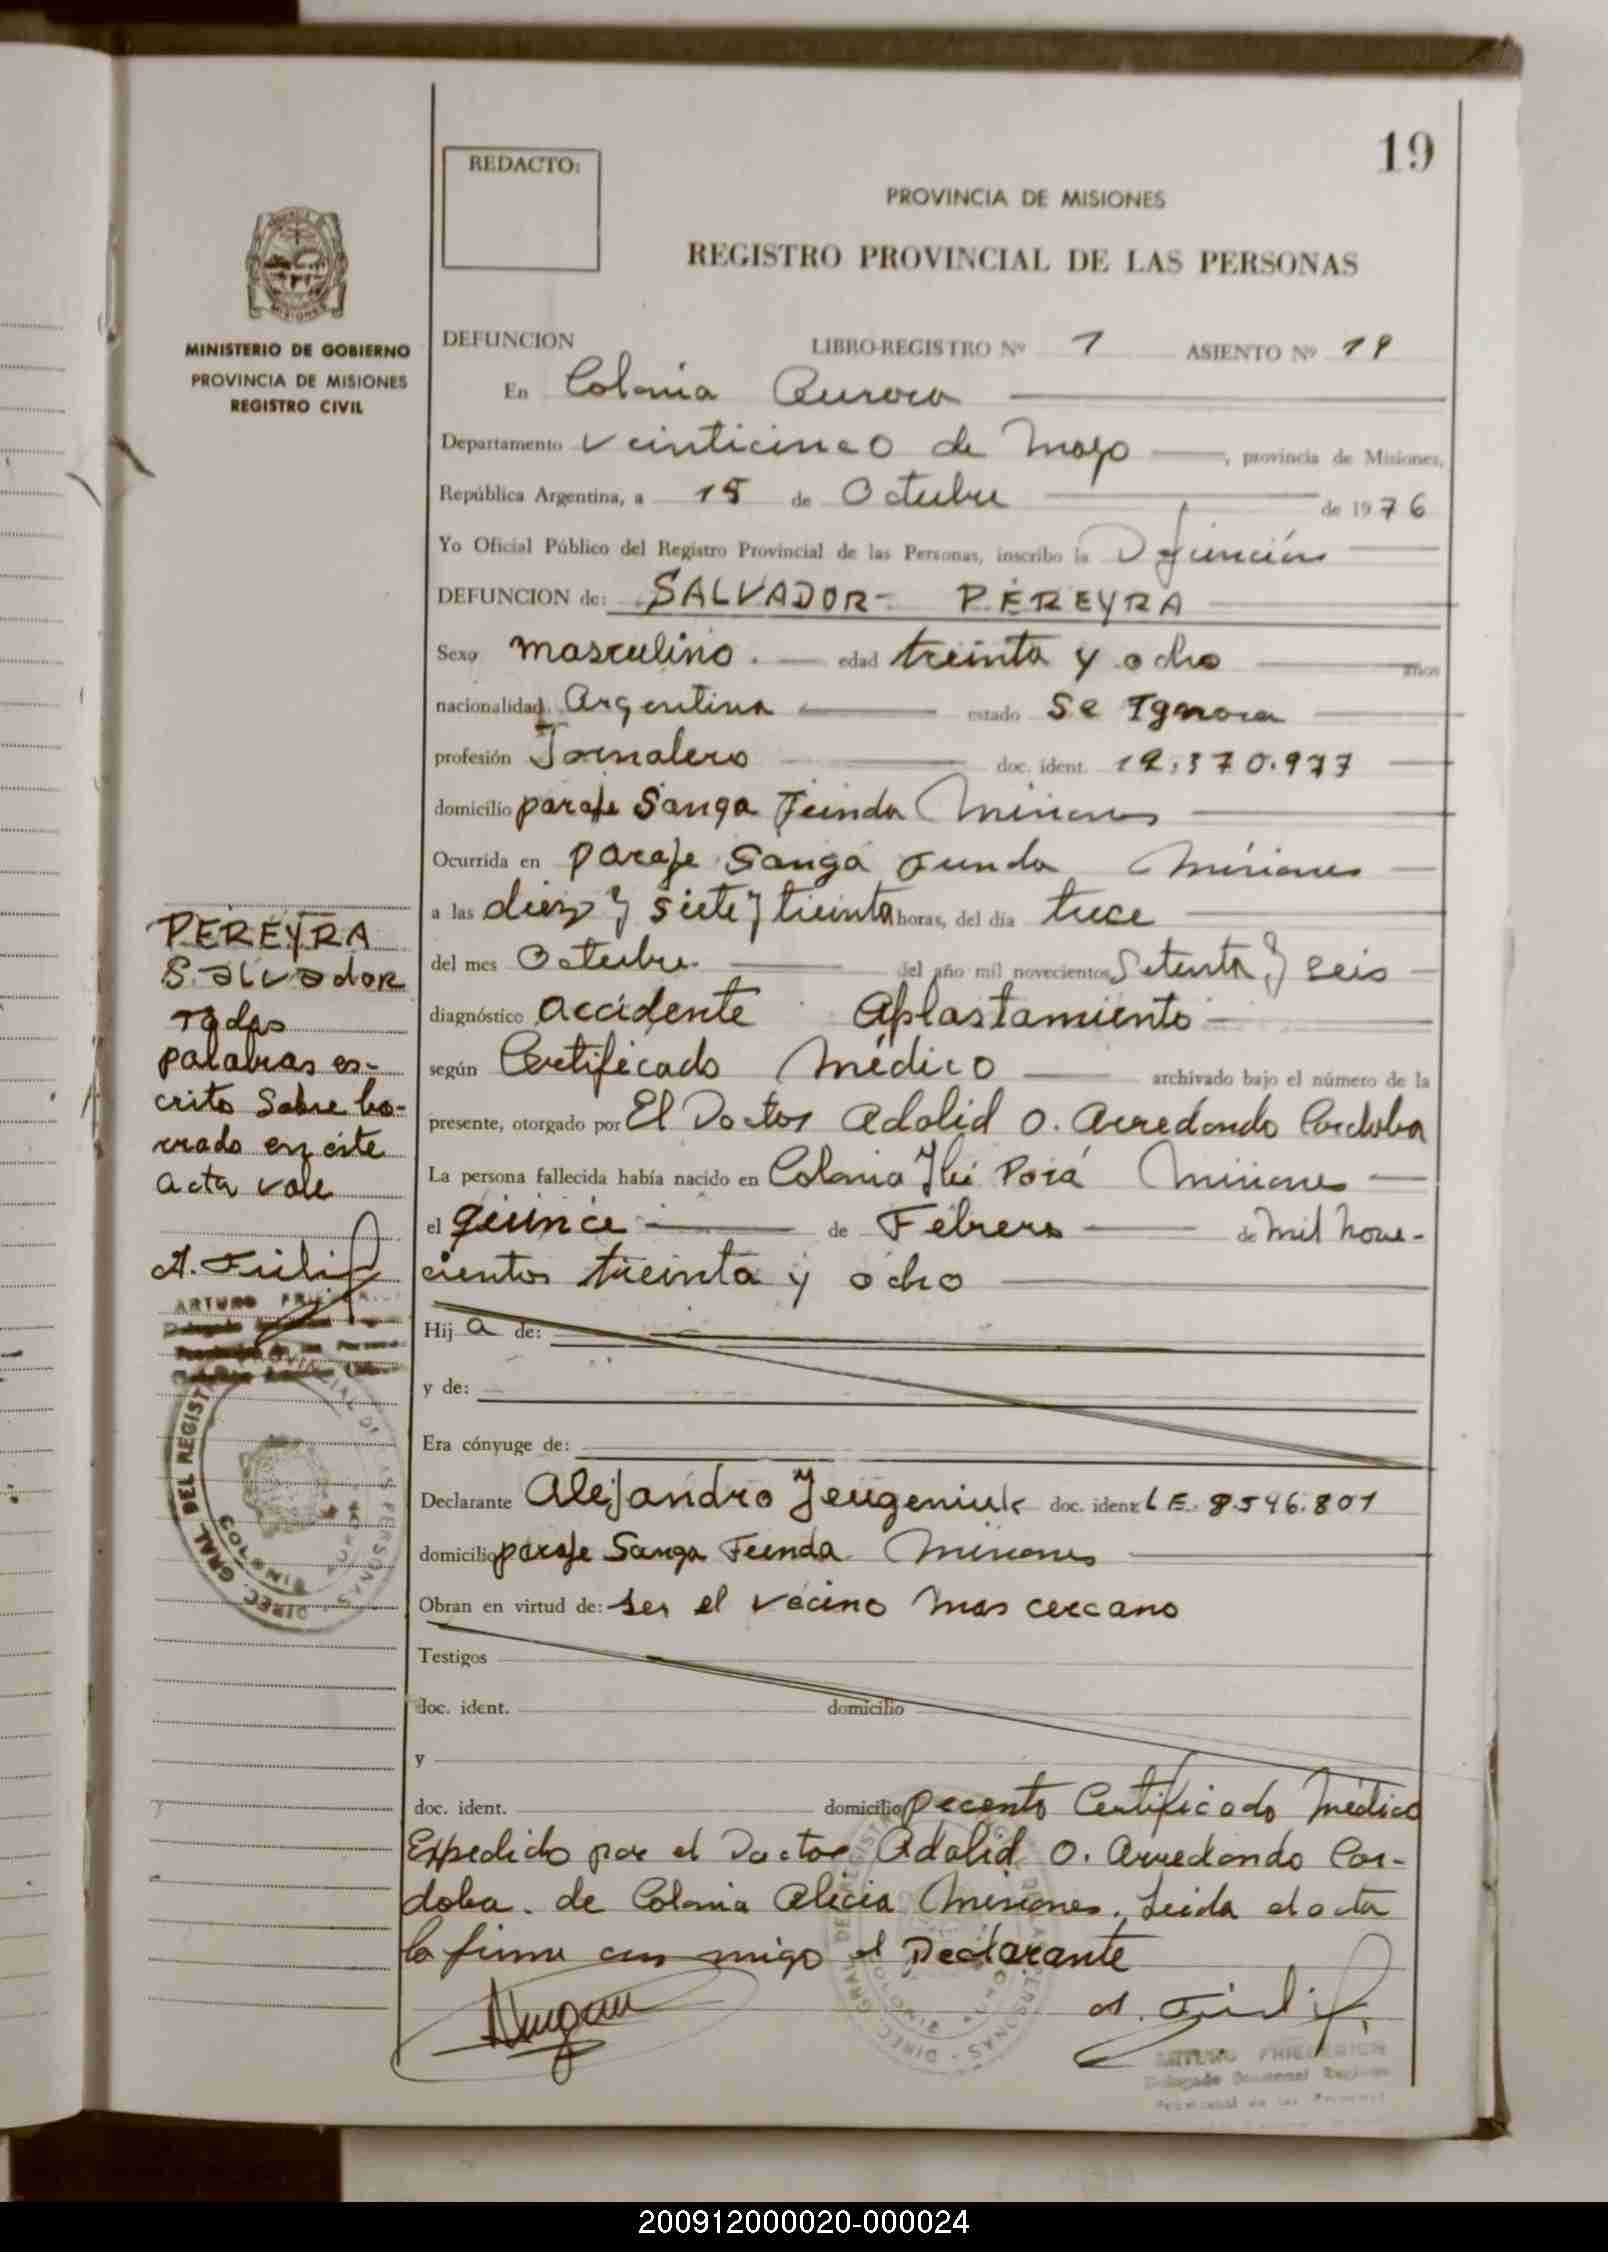 19
REDACTO:
PROVINCIA DE MISIONES
REGISTRO PROVINCIAL DE LAS PERSONAS
MINISTERIO DE GOBIERNO
PROVINCIA DE MISIONES
REGISTRO CIVIL
DEFUNCION LIBRO-REGISTRO Nº 1 ASIENTO Nº 19
En Colonia Aurora
Departamento Veinticinco de Mayo, provincia de Misiones,
República Argentina, a 15 de Octubre de 1976
Yo Oficial Público del Registro Provincial de las Personas, inscribo la Defunción
DEFUNCION de: SALVADOR- PEREYRA
Sexo masculino. edad treinta y ocho años
nacionalidad Argentina estado Se Ignora
profesión Jornalero doc. ident.
domicilio paraje Sanga Funda Misiones
Ocurrida en paraje Sanga Funda Misiones
a las diez y siete y treinta horas, del día trece
del mes Octubre. del año mil novecientos Setenta y seis
diagnóstico accidente Aplastamiento
según Certificado Médico archivado bajo el número de la
presente, otorgado por El Doctor Adalid O. Arredondo Cordoba
La persona fallecida había nacido en Colonia Misiones
el quince de Febrero de mil nove-
cientos treinta y ocho
Hij a de:
y de:
Era cónyuge de:
Declarante Alejandro doc. ident. L E. 8.546.801
domicilio paraje Sanga Funda Misiones
Obran en virtud de: ser el vecino mas cercano
Testigos
doc. ident. domicilio
y
doc. ident. domicilio Certificado Médico
Expedido por el Doctor Adalid O. Arredondo Cor-
doba. de Colonia Alicia Misiones. Leida el acta
la firma con migo el Declarante
PEREYRA
Salvador
Todas
palabras es-
crito Sobre bo-
rrado en este
acta vale
ARTURO
DIREC. GRAL. DEL REGISTRO PROVINCIAL DE LAS PERSONAS
ARTURO FRIEDERICH
200912000020-000024